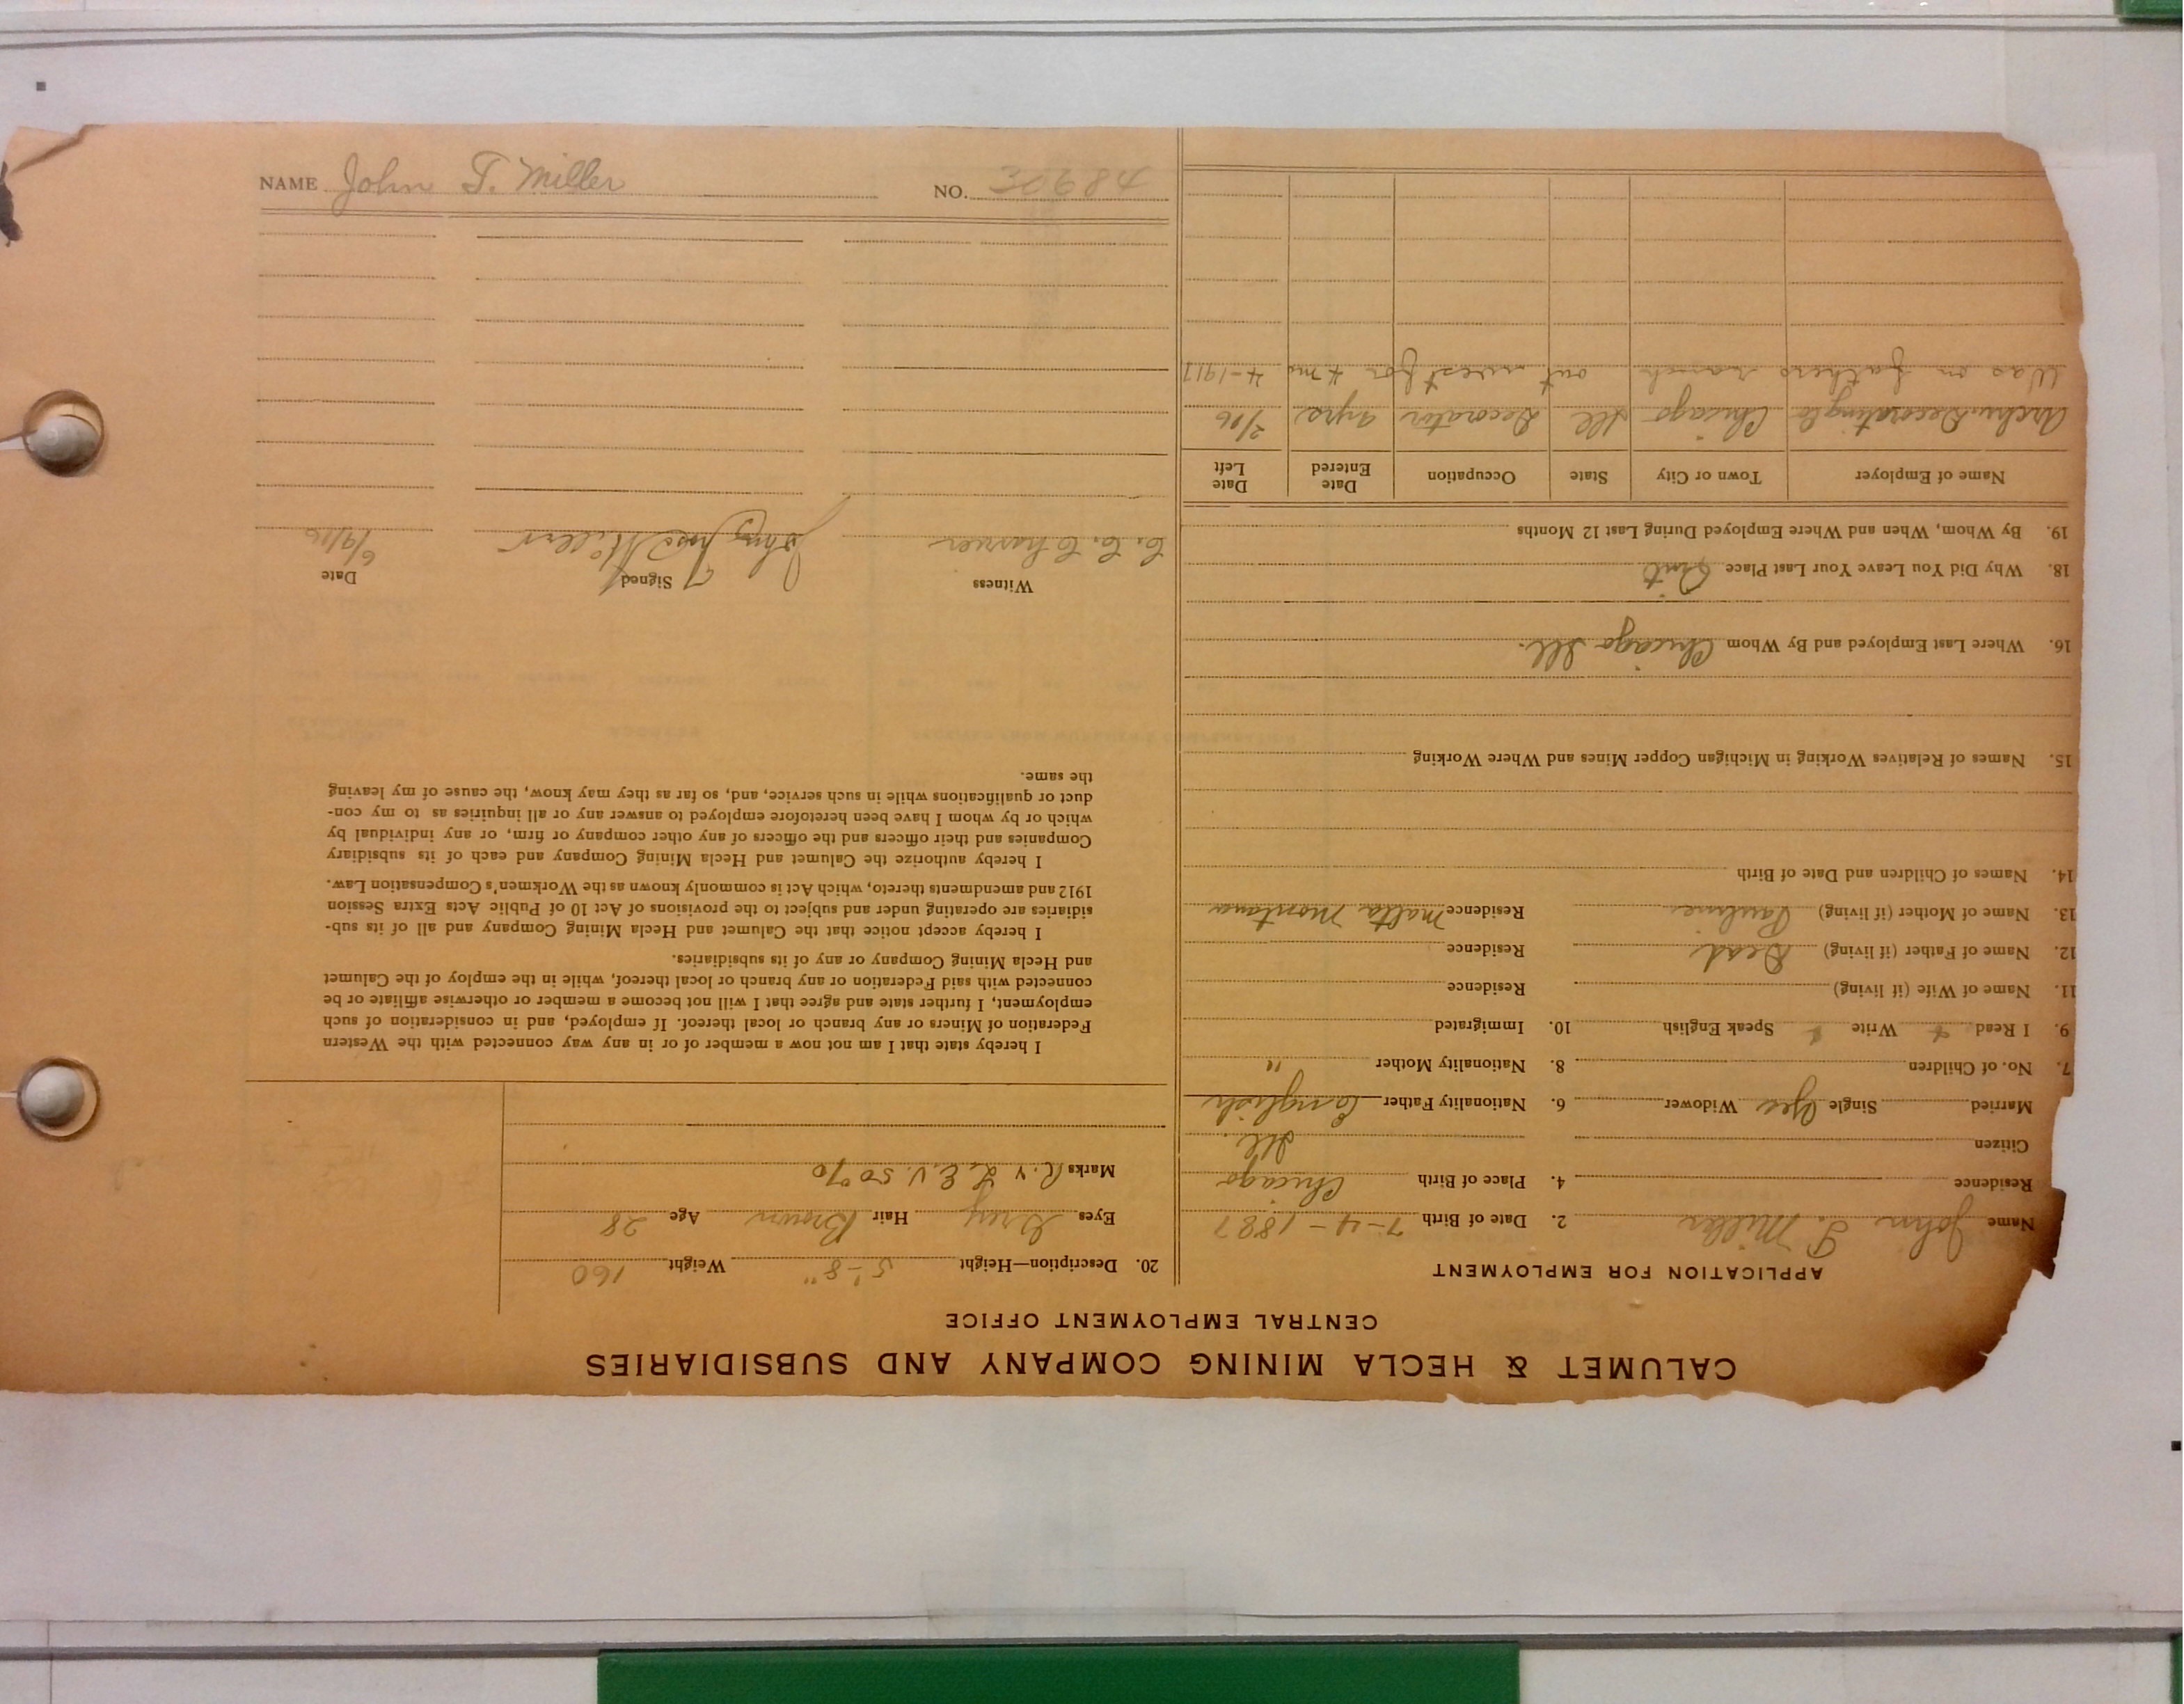 CALUMET & HECLA MINING COMPANY AND SUBSIDIARIES
CENTRAL EMPLOYMENT OFFICE
APPLICATION FOR EMPLOYMENT
Name John T. Miller 2. Date of Birth 7-4-1887
Residence 4. Place of Birth Chicago
Citizen Ill.
Married Single Yes Widower 6. Nationality Father English
7. No. of Children 8. Nationality Mother "
9. I Read Write Speak English 10. Immigrated
11. Name of Wife (if living) Residence
12. Name of Father (if living) Dead Residence
13. Name of Mother (if living) Pauline Residence Malta Montana
14. Names of Children and Date of Birth
15. Names of Relatives Working in Michigan Copper Mines and Where Working
16. Where Last Employed and By Whom Chicago Ill.
18. Why Did You Leave Your Last Place Quit
19. By Whom, When and Where Employed During Last 12 Months
Name of Employer Town or City State Occupation Date Entered Date Left
Decorating Co Chicago Ill Decorator 4yrs 2/06
Was on fathers ranch out west for 4 mo 4-1917
20. Description—Height 5'-8" Weight 160
Eyes Grey Hair Brown Age 28
Marks R. & L. E. V. 50%
I hereby state that I am not now a member of or in any way connected with the Western
Federation of Miners or any branch or local thereof. If employed, and in consideration of such
employment, I further state and agree that I will not become a member or otherwise affiliate or be
connected with said Federation or any branch or local thereof, while in the employ of the Calumet
and Hecla Mining Company or any of its subsidiaries.
I hereby accept notice that the Calumet and Hecla Mining Company and all of its sub-
sidiaries are operating under and subject to the provisions of Act 10 of Public Acts Extra Session
1912 and amendments thereto, which Act is commonly known as the Workmen's Compensation Law.
I hereby authorize the Calumet and Hecla Mining Company and each of its subsidiary
Companies and their officers and the officers of any other company or firm, or any individual by
which or by whom I have been heretofore employed to answer any or all inquiries as to my con-
duct or qualifications while in such service, and, so far as they may know, the cause of my leaving
the same.
Witness Signed Date
C. C. John Miller 6/9/16
NAME John T. Miller NO. 30984